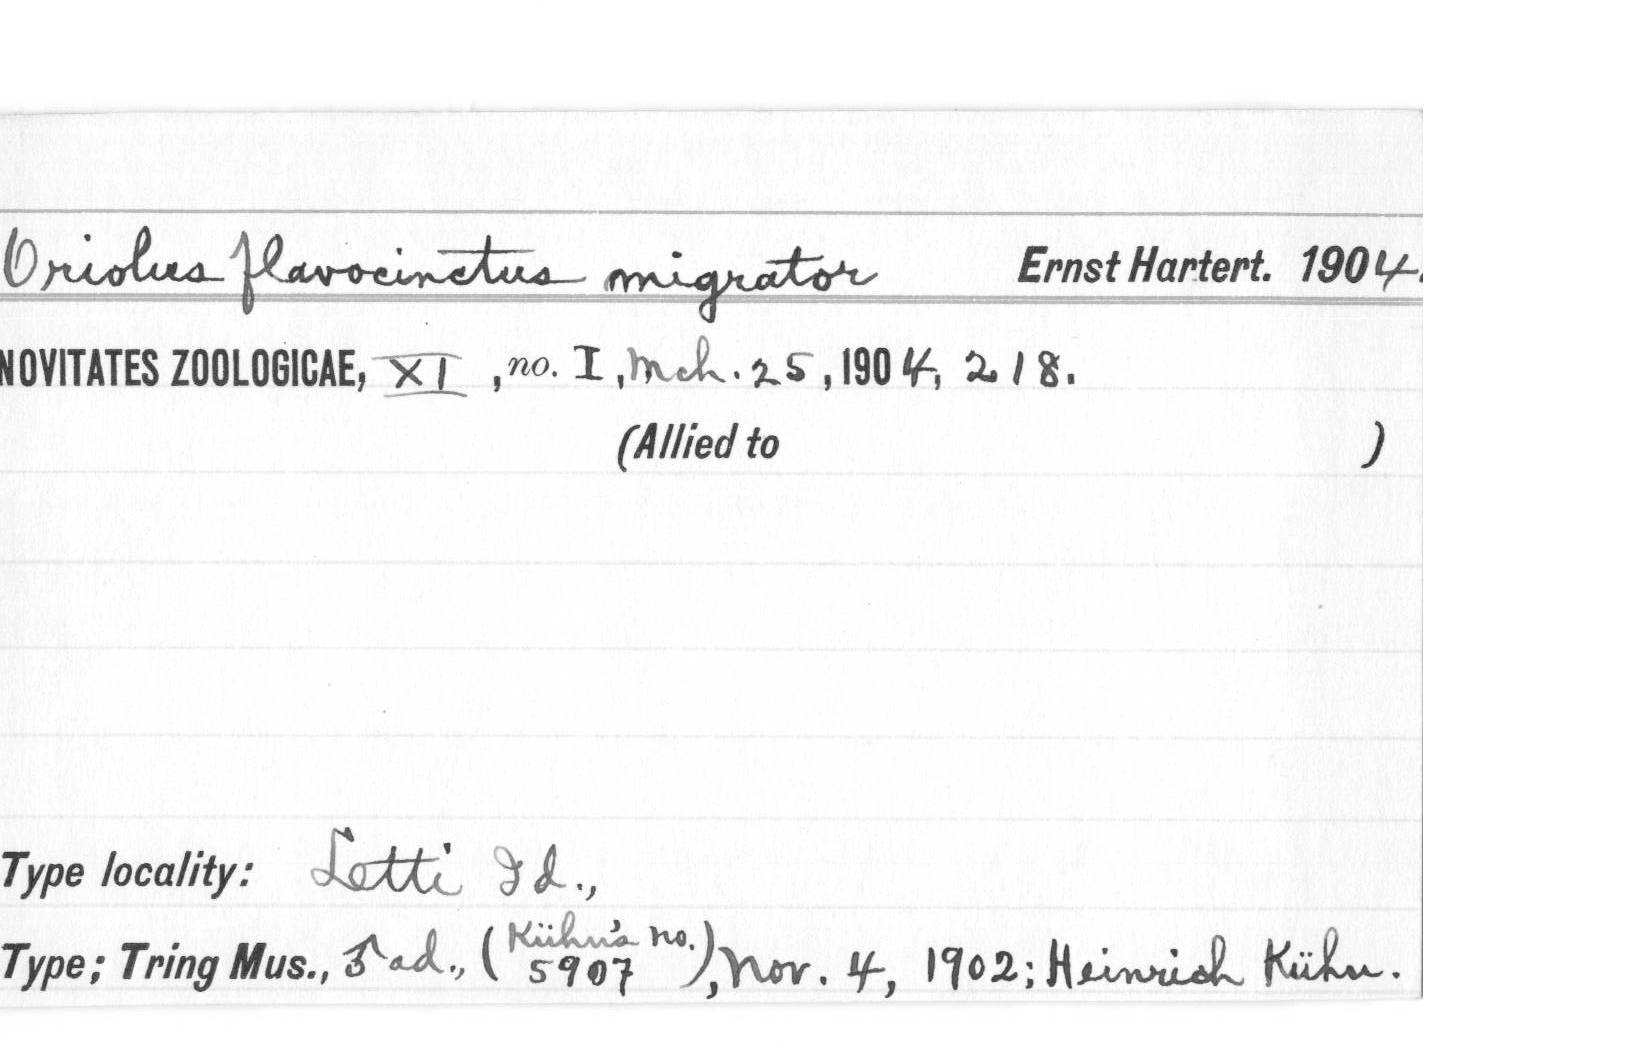 Oriolus flavocinctus migrator Ernst Hartert. 1904.
NOVITATES ZOOLOGICAE, XI, no. I, Mch. 25, 1904, 218.
(Allied to )
Type locality: Letti Id.,
Type; Tring Mus., ♂ ad., (Kühn's no. 5907), Nov. 4, 1902; Heinrich Kühn.